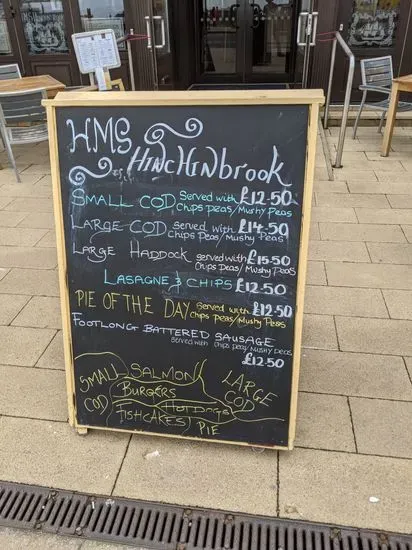 HMS
HINCHINbrOOK
SMALL COD Served with £12-50
Chips peas/Mushy Peas
LARGE COD served with £14-50
Chips Peas/Mushy Peas
LARGE HADDOCK served with £15-50
Chips Peas/Mushy Peas
LASAGNE & CHIPS £12-50
PIE OF THE DAY Served with £12-50
Chips peas/Mushy Peas
FOOTLONG BATTERED SAUSAGE
Served with Chips peas/Mushy Peas
£12-50
SMALL COD
SALMON
BURGERS
HOTDOGS
FISHCAKES
PIE
LARGE COD